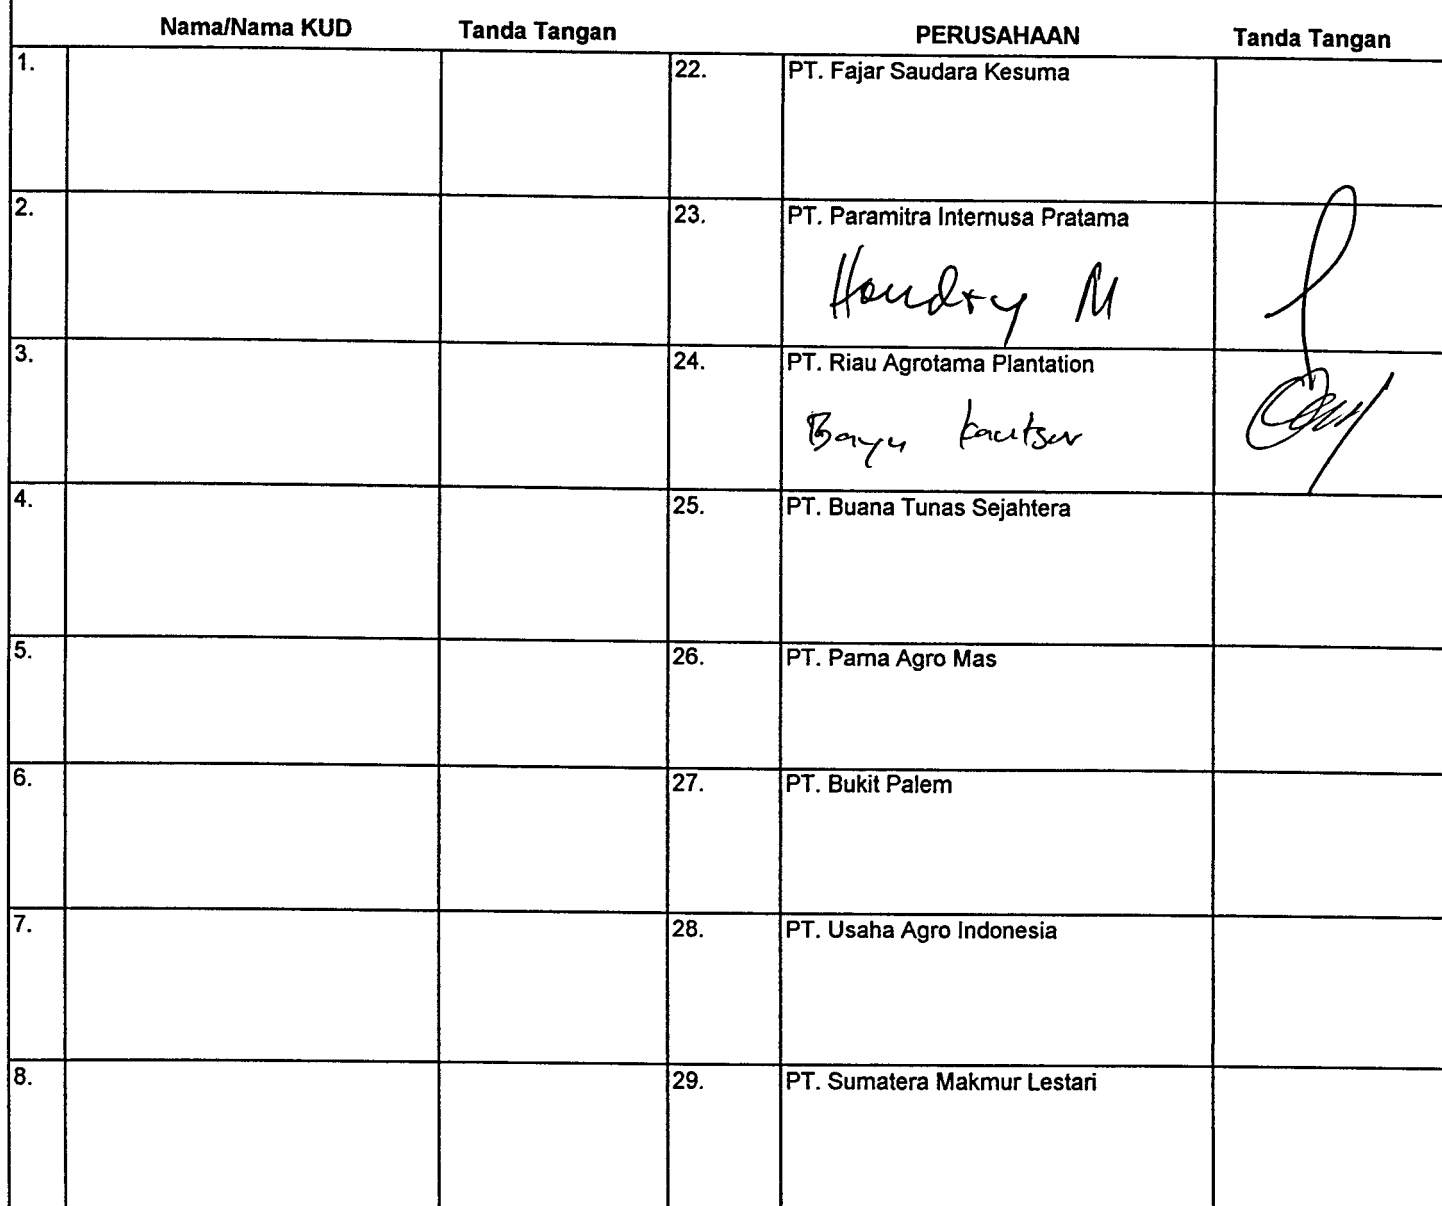 Nama/Nama KUD Tanda Tangan PERUSAHAAN Tanda Tangan
1. 22. PT. Fajar Saudara Kesuma
2. 23. PT. Paramitra Internusa Pratama
Hendry M
3. 24. PT. Riau Agrotama Plantation
Bayu Kautsar
4. 25. PT. Buana Tunas Sejahtera
5. 26. PT. Parna Agro Mas
6. 27. PT. Bukit Palem
7. 28. PT. Usaha Agro Indonesia
8. 29. PT. Sumatera Makmur Lestari